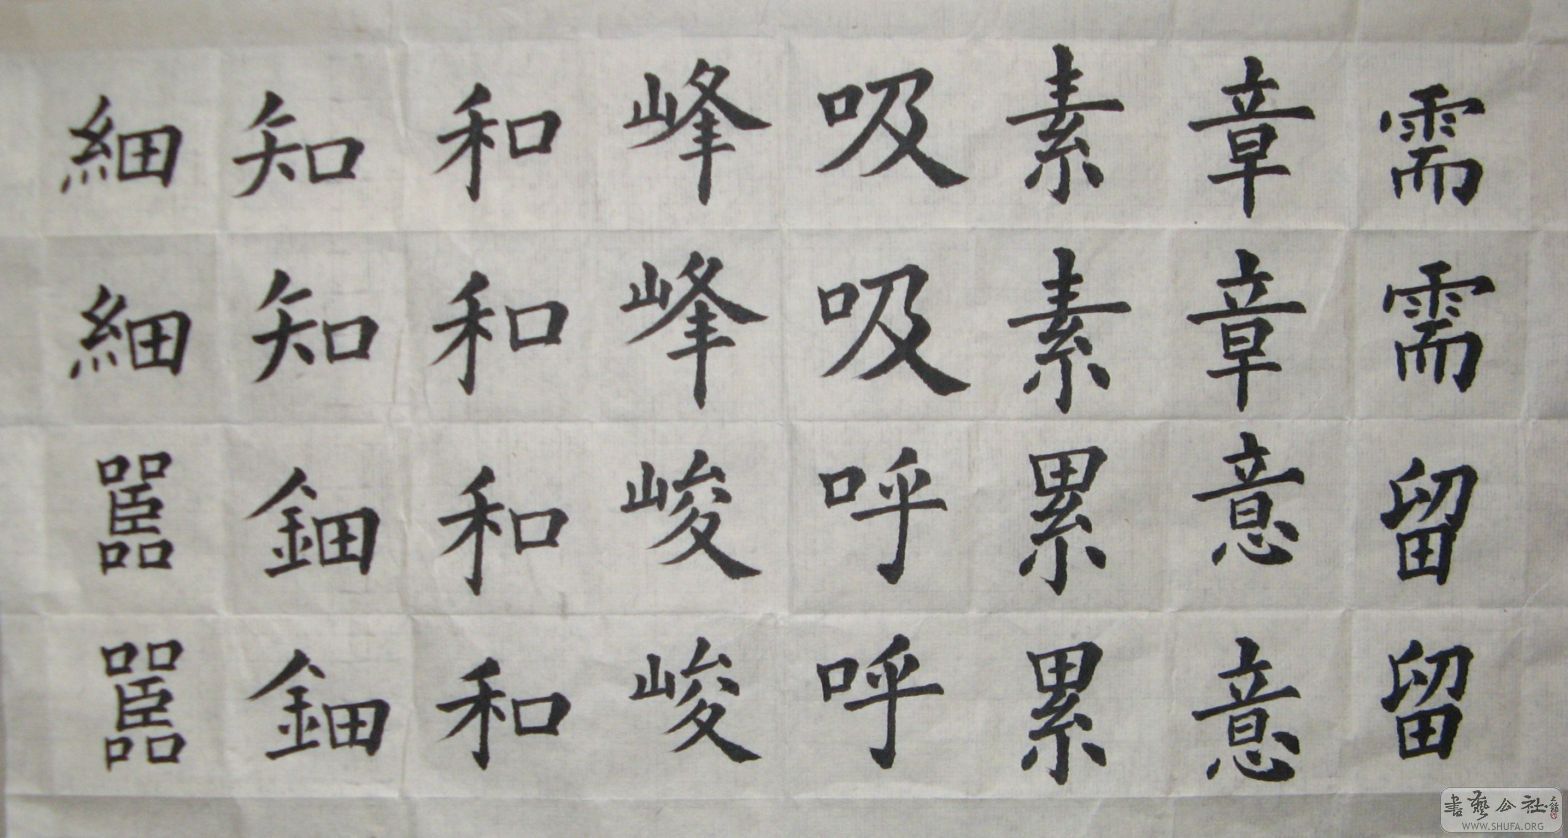 需需留留
章章意意
素素累累
吸吸呼呼
峰峰峻峻
和和和和
知知鈿鈿
細細嚚嚚
書藝公社
WWW.SHUFA.ORG